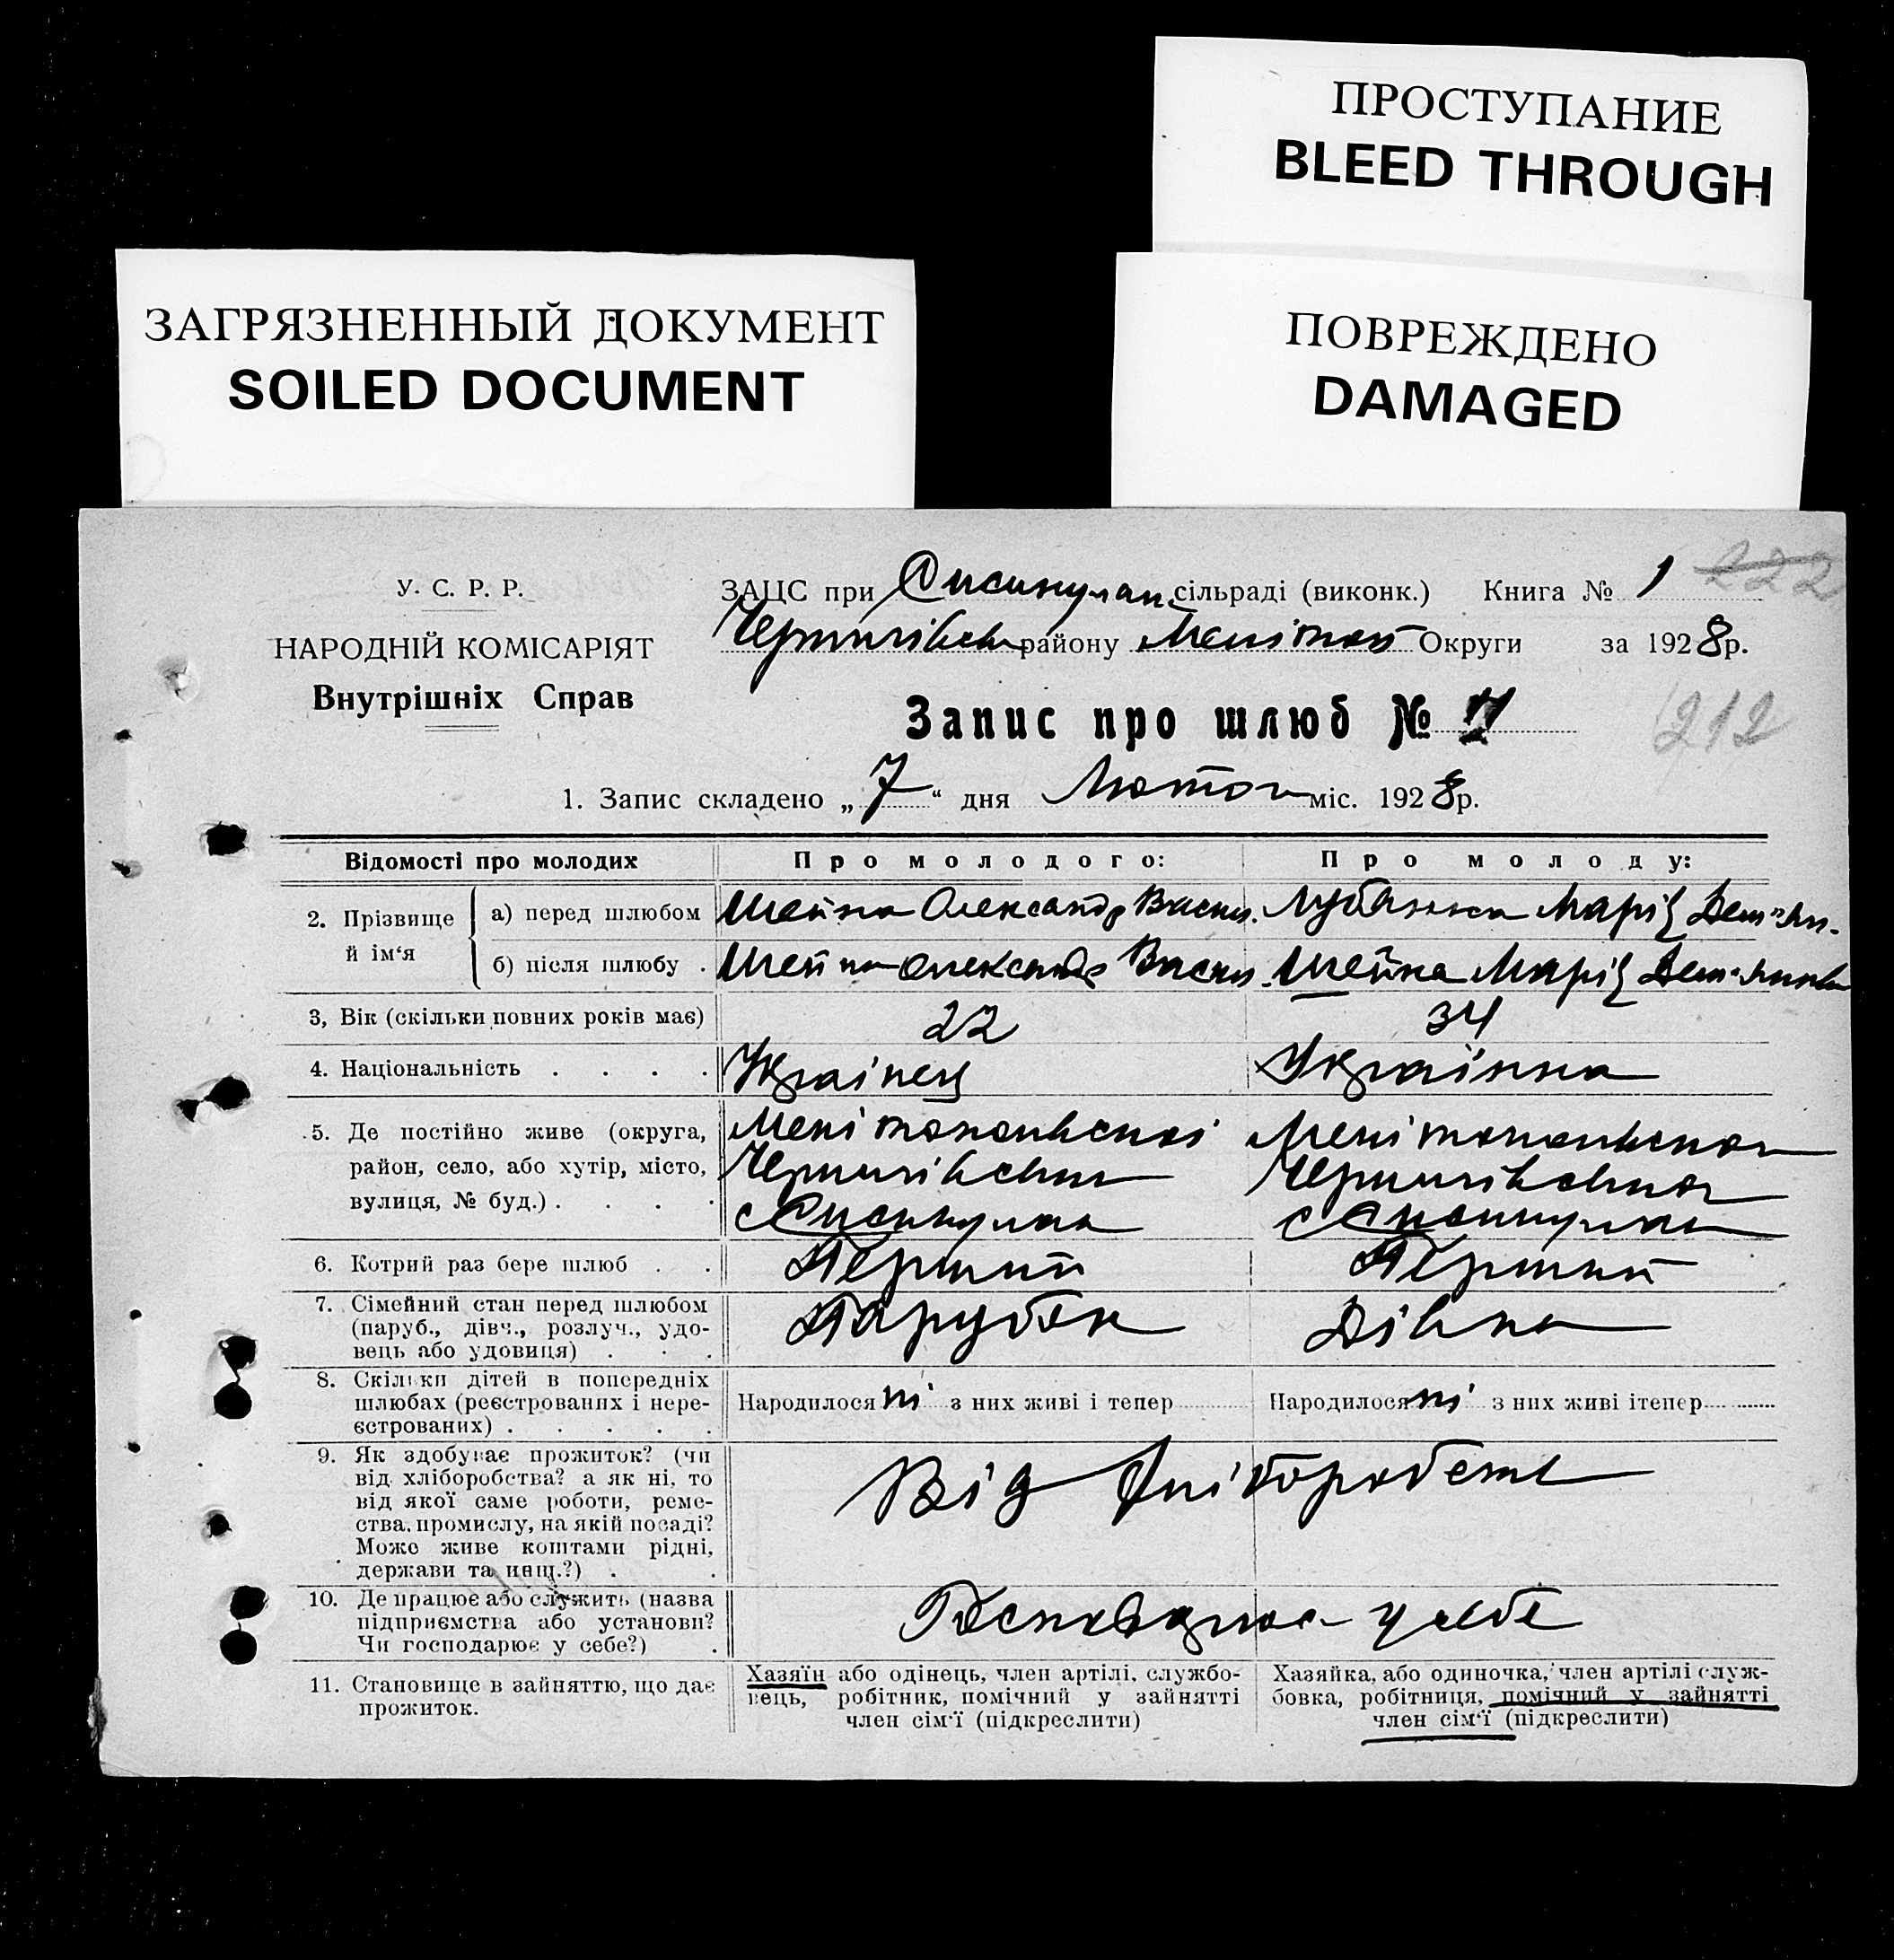 ПРОСТУПАНИЕ
BLEED THROUGH
ЗАГРЯЗНЕННЫЙ ДОКУМЕНТ
SOILED DOCUMENT
ПОВРЕЖДЕНО
DAMAGED
У. С. Р. Р.
НАРОДНІЙ КОМІСАРІЯТ
Внутрішніх Справ
ЗАЦС при сільраді (виконк.) Книга № 1 222
Чернигівськ району Мелітоп Округи за 1928 р.
Запис про шлюб № 11
212
1. Запис складено „ 7 “ дня Лютого міс. 1928 р.
Відомості про молодих
Про молодого:
Про молоду:
2. Прізвище й ім‘я
а) перед шлюбом
Шейка Олександр Васил. Марія
б) після шлюбу .
Шейка Олександр Васил Шейка Марія
3, Вік (скільки повних років має)
22
34
4. Національність . . . .
Українец
Українка
5. Де постійно живе (округа,
район, село, або хутір, місто,
вулиця, № буд.) . . . .
Мелітопольскої
Чернигівської
с
Мелітопольской
Чернигівской
с
6. Котрий раз бере шлюб . .
Перший
Перший
7. Сімейний стан перед шлюбом
(паруб., дівч., розлуч., удо-
вець або удовиця) . . .
Парубок
Дівка
8. Скільки дітей в попередніх
шлюбах (реєстрованих і нере-
єстрованих) . . . . .
Народилося ні з них живі і тепер
Народилося ні з них живі ітепер
9. Як здобуває прожиток? (чи
від хліборобства? а як ні, то
від якої саме роботи, реме-
ства, промислу, на якій посаді?
Може живе коштами рідні,
держави та инщ.?) . .
Від Хліборобств
10. Де працює або служить (назва
підприємства або установи?
Чи господарює у себе?) .
у себе
11. Становище в зайняттю, що дає
прожиток.
Хазяїн або одінець, член артілі, службо-
вець, робітник, помічний у зайнятті
член сім‘ї (підкреслити)
Хазяйка, або одиночка, член артілі служ-
бовка, робітниця, помічний у зайнятті
член сім‘ї (підкреслити)